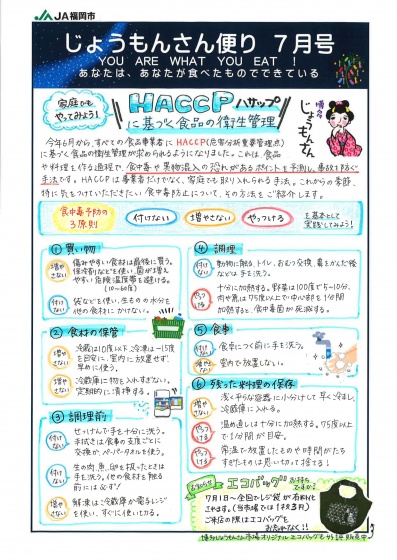 JA福岡市
じょうもんさん便り 7月号
YOU ARE WHAT YOU EAT !
あなたは、あなたが食べたものでできている
家庭でも
やってみよう！
HACCP ハサップ
に基づく食品の衛生管理
博多
じょうもんさん
今年6月から、すべての食品事業者にHACCP(危害分析重要管理点)
に基づく食品の衛生管理が求められるようになりました。これは、食品
や料理を作る過程で、食中毒や異物混入の恐れがあるポイントを予測し、事故を防ぐ
手法です。HACCPは事業者だけでなく、家庭でも取り入れられる手法。これからの季節、
特に気をつけていただきたい食中毒防止について、その方法をご紹介します。
食中毒予防の
3原則
付けない
増やさない
やっつける
を基本として
実践してみよう！
①買い物
増やさない
傷みやすい食材は最後に買う。
保冷剤などを使い、菌が増え
やすい危険温度帯を避ける。
(10~60度)
付けない
袋などを使い、生ものの水分を
他の食材にかけない。
② 食材の保管
増やさない
冷蔵は10度以下、冷凍は-15度
を目安に。室内に放置せず、
早めに使う。
増やさない
冷蔵庫に物を入れすぎない。
定期的に清掃する。
③ 調理前
付けない
せっけんで手を十分に洗う。
手拭きは食事の支度ごとに
交換か、ペーパータオルを使う。
付けない
生の肉、魚、卵を扱ったときは
手を洗う。他の食材を触る
前には必ず！
増やさない
解凍は冷蔵庫か電子レンジ
を使い、すぐに使い切る。
④ 調理
付けない
動物に触る、トイレ、おむつ交換、鼻をかんだ後
などは手を洗う。
やっつける
十分に加熱する。野菜は100度で5~10分、
肉や魚は75度以上で中心部を1分間
加熱すると、食中毒菌が死滅する。
⑤ 食事
付けない
食卓につく前に手を洗う。
増やさない
室内で放置しない。
⑥ 残った料理の保存
増やさない
浅く平らな容器に小分けして早く冷まし、
冷蔵庫に入れる。
やっつける
温め直しは十分に加熱する。75度以上
で1分間が目安。
やっつける
常温で放置したものや時間がたち
すぎたものは思い切って捨てる！
お知らせ
エコバッグ
お持ちですか？
7月1日~全国でレジ袋が有料化
されます。(当市場では1枚3円)
ご来店の際はエコバッグを
お忘れなく！！
博多じょうもんさん市場オリジナルエコバッグも好評販売中